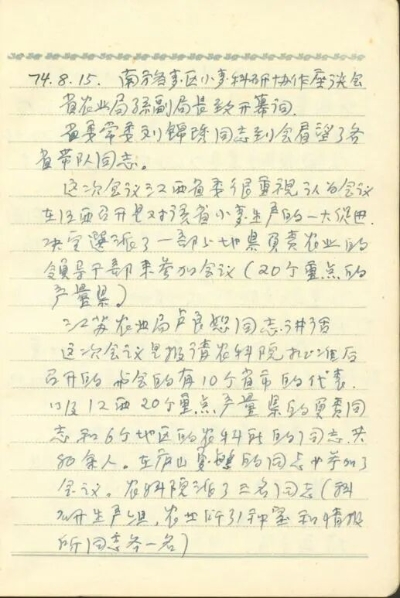 74.8.15. 南方各麦区小麦科研协作座谈会
省农业局孙副局长致开幕词.
省委常委刘 同志到会看望了各
省带队同志。
这次会议江西省委很重视认为会议
在江西召开是对该省小麦生产的一大促进.
决定选派了一部分地县负责农业的
领导干部来参加会议(20个重点的
产量县)
江苏农业局卢良恕同志讲话
这次会议是报请农科院批准后
召开的 出会的有10个省市的代表.
以及江西20个重点产量县的负责同
志和6个地区的农科所的同志共
余人。在庐山 的同志也参加了
会议。农科院派了三名同志(科
研生产组,农业所引种室和情报
所同志各一名)